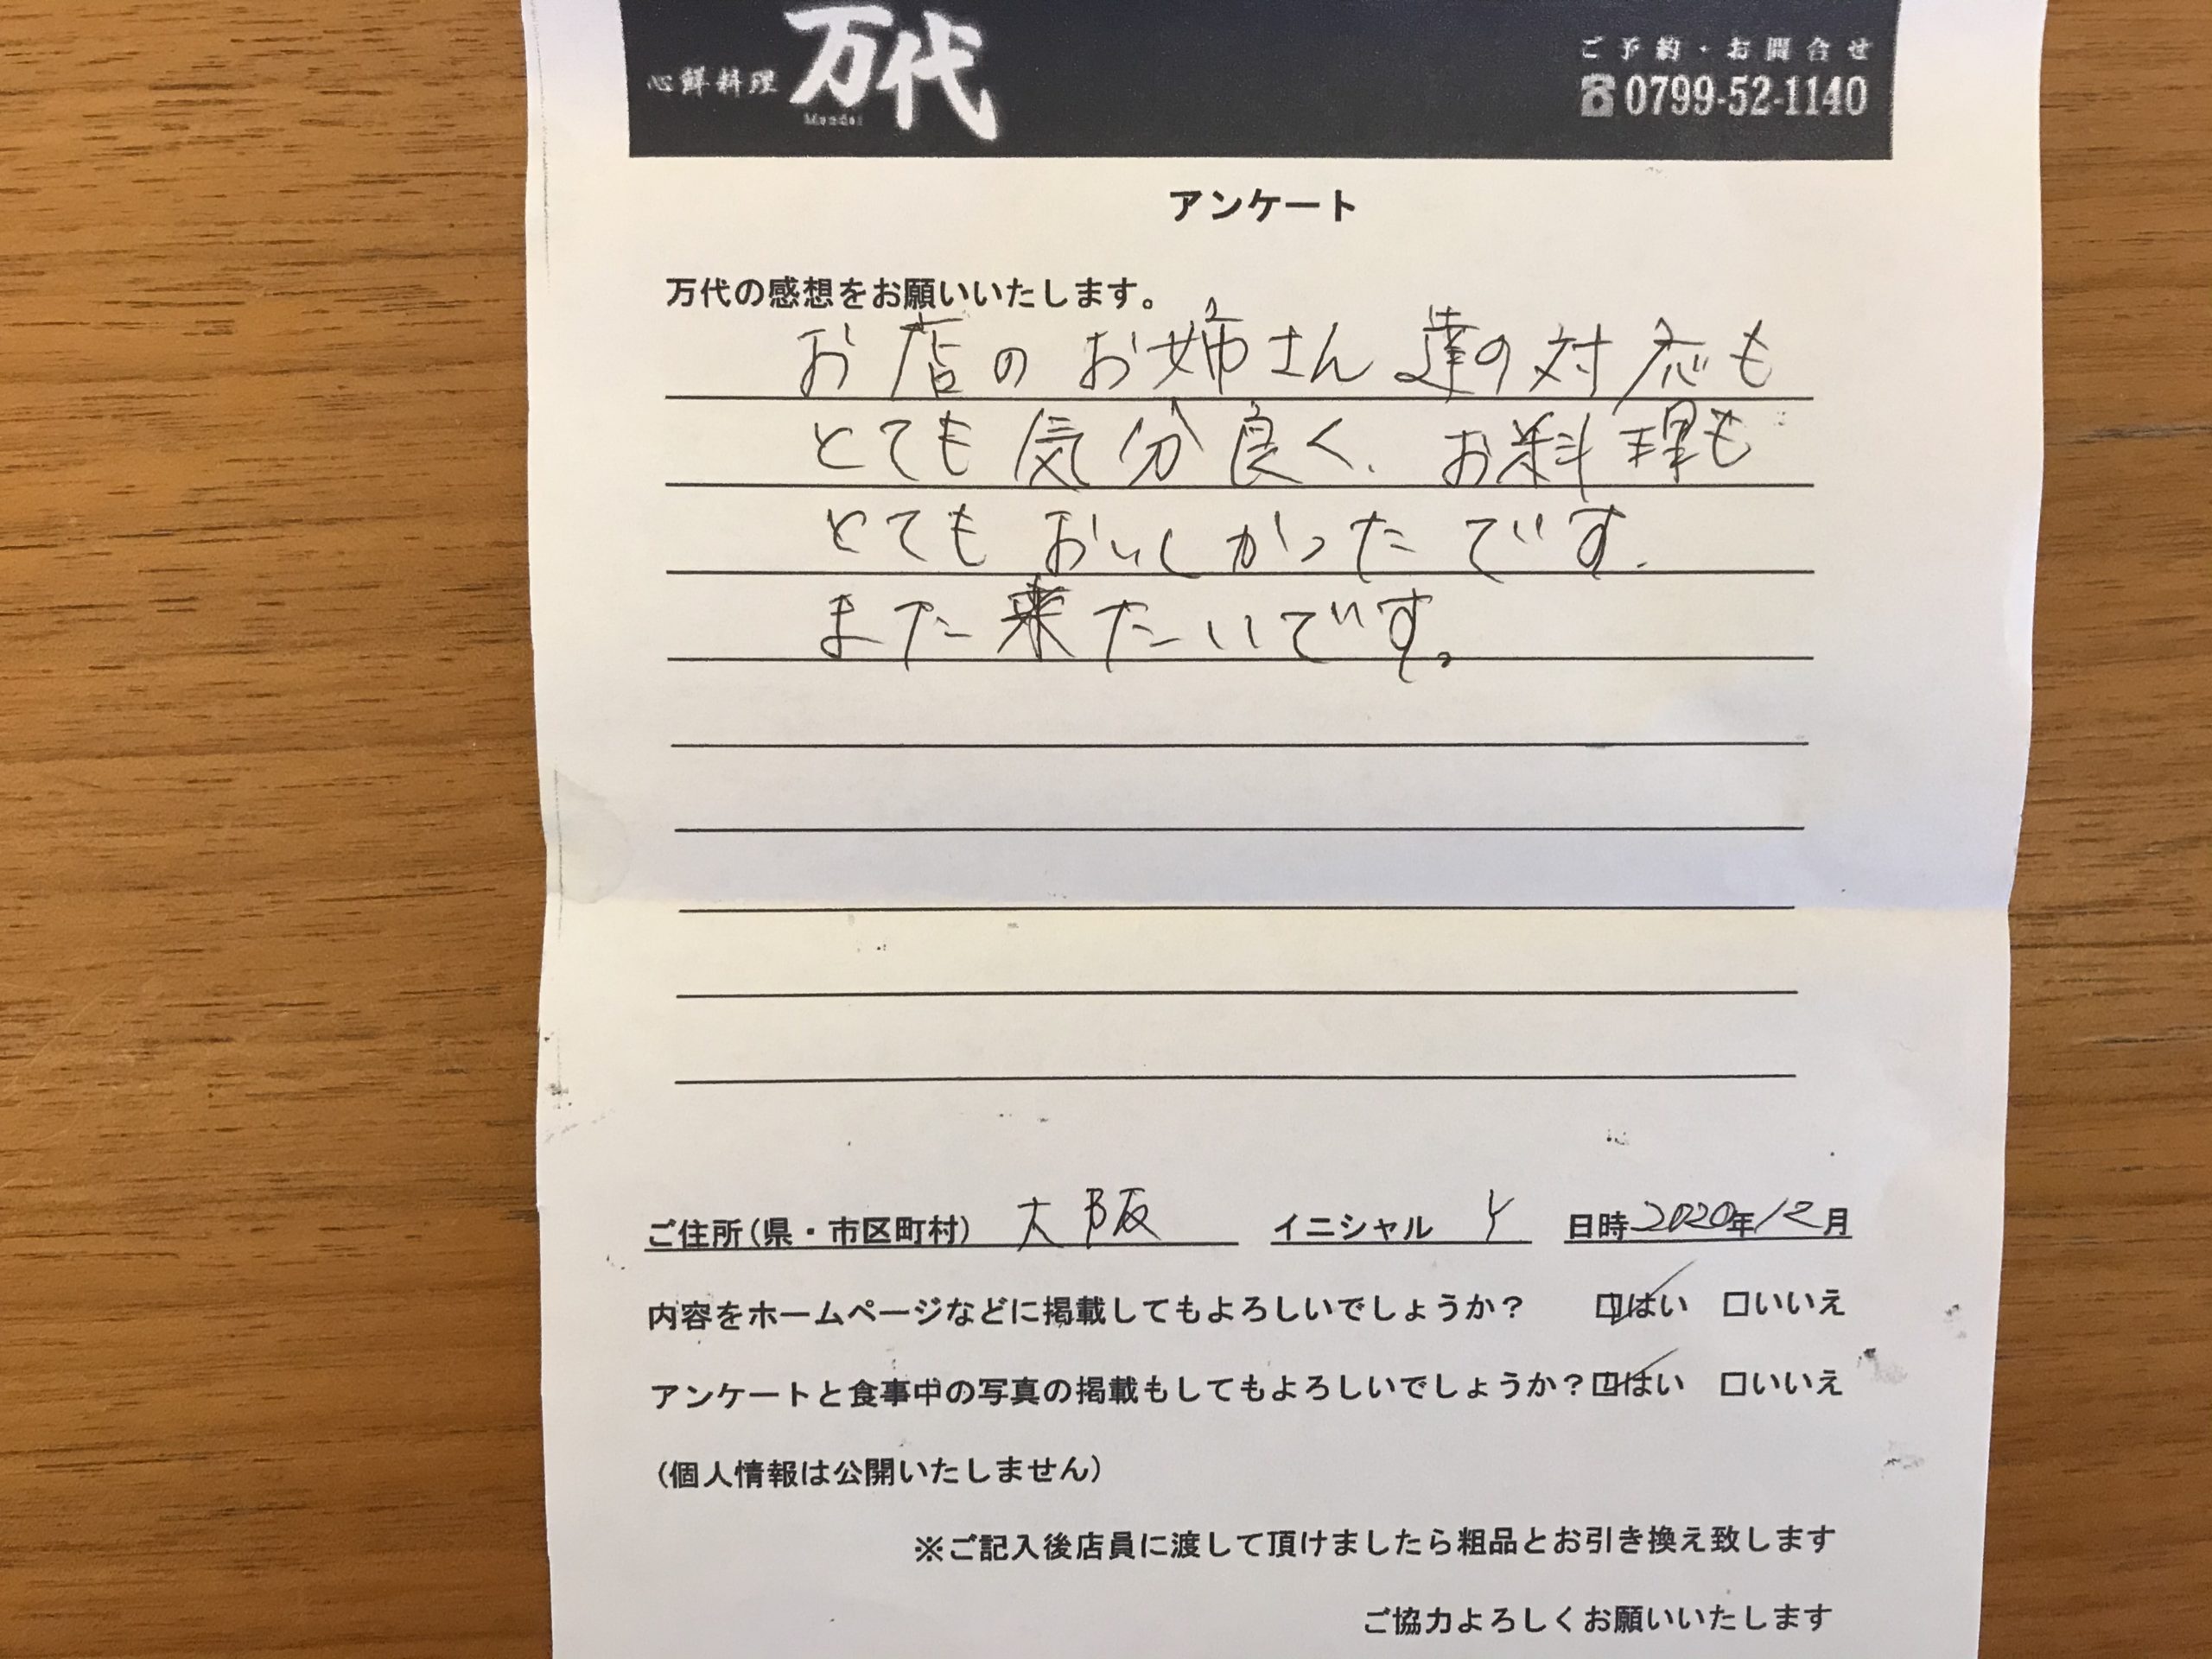 心鮮料理 万代
Mandai
ご予約・お問合せ
☎0799-52-1140
アンケート
万代の感想をお願いいたします。
お店のお姉さん達の対応も
とても気分良く、お料理も
とてもおいしかったです.
また来たいです。
ご住所(県・市区町村) 大阪 イニシャル Y 日時2020年12月
内容をホームページなどに掲載してもよろしいでしょうか？ ☑はい □いいえ
アンケートと食事中の写真の掲載もしてもよろしいでしょうか？☑はい □いいえ
(個人情報は公開いたしません)
※ご記入後店員に渡して頂けましたら粗品とお引き換え致します
ご協力よろしくお願いいたします